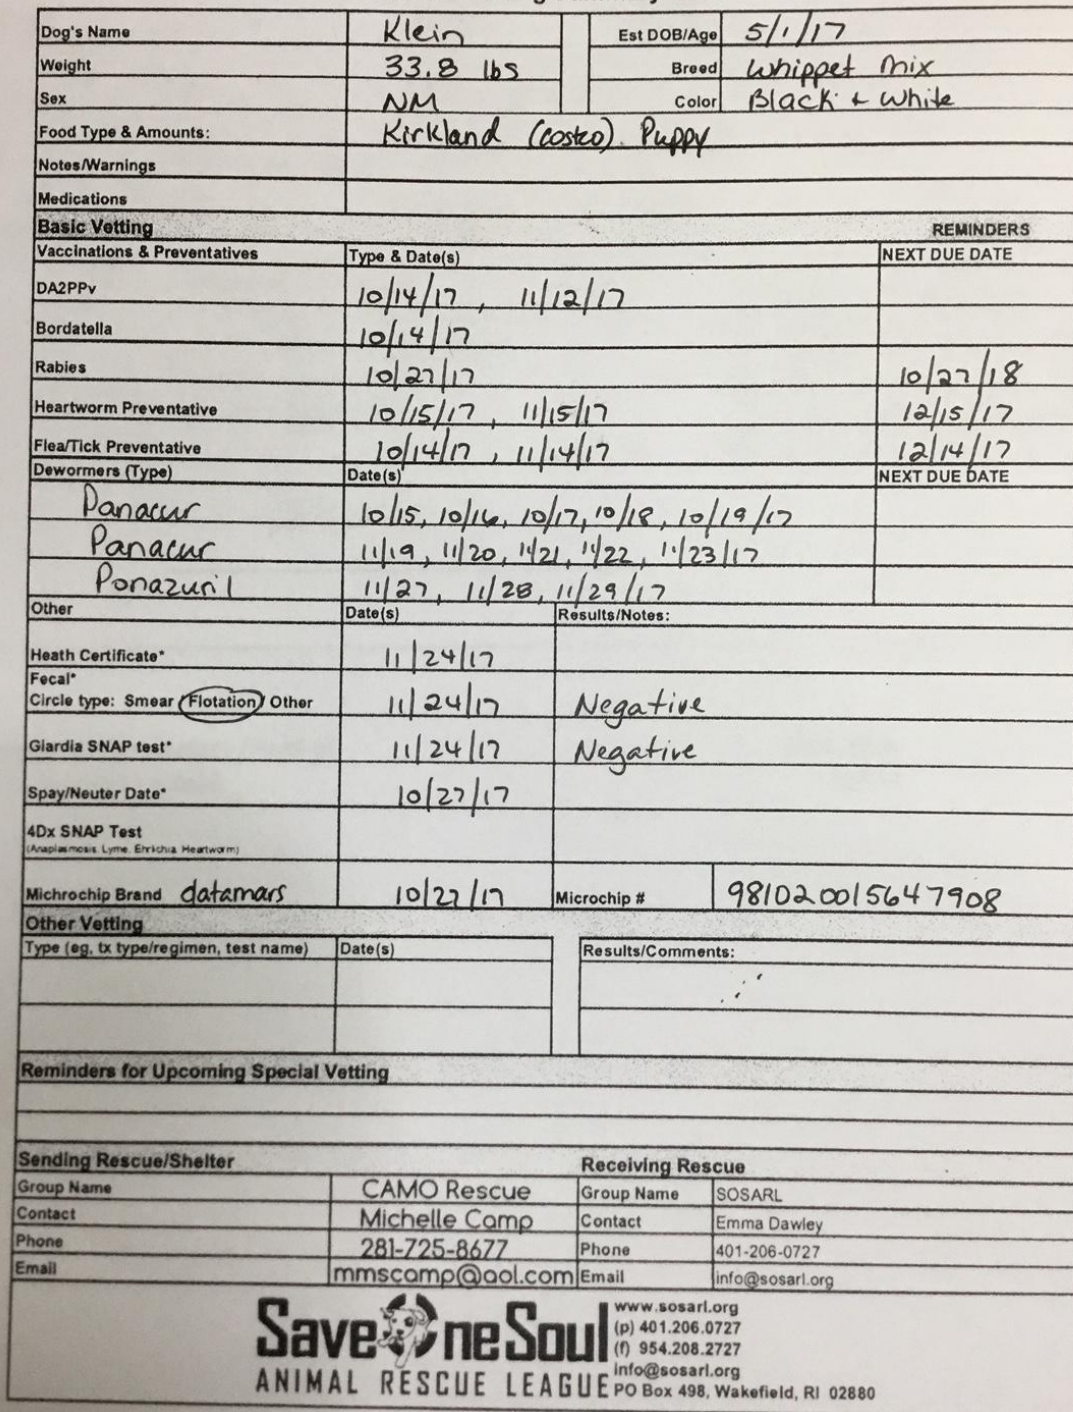 Dog's Name Klein Est DOB/Age 5/1/17
Weight 33.8 lbs Breed Whippet Mix
Sex NM Color Black & White
Food Type & Amounts: Kirkland (costco) Puppy
Notes/Warnings
Medications
Basic Vetting REMINDERS
Vaccinations & Preventatives Type & Date(s) NEXT DUE DATE
DA2PPv 10/14/17, 11/12/17
Bordatella 10/14/17
Rabies 10/27/17 10/27/18
Heartworm Preventative 10/15/17, 11/15/17 12/15/17
Flea/Tick Preventative 10/14/17, 11/14/17 12/14/17
Dewormers (Type) Date(s) NEXT DUE DATE
Panacur 10/15, 10/16, 10/17, 10/18, 10/19/17
Panacur 11/19, 11/20, 11/21, 11/22, 11/23/17
Ponazuril 11/27, 11/28, 11/29/17
Other Date(s) Results/Notes:
Heath Certificate* 11/24/17
Fecal*
Circle type: Smear / Flotation / Other 11/24/17 Negative
Giardia SNAP test* 11/24/17 Negative
Spay/Neuter Date* 10/27/17
4Dx SNAP Test
(Anaplasmosis, Lyme, Ehrichia, Heartworm)
Michrochip Brand datamars 10/27/17 Microchip # 981020015647908
Other Vetting
Type (eg, tx type/regimen, test name) Date(s) Results/Comments:
Reminders for Upcoming Special Vetting
Sending Rescue/Shelter Receiving Rescue
Group Name CAMO Rescue Group Name SOSARL
Contact Michelle Camp Contact Emma Dawley
Phone 281-725-8677 Phone 401-206-0727
Email mmscamp@aol.com Email info@sosarl.org
Save One Soul
ANIMAL RESCUE LEAGUE
www.sosarl.org
(p) 401.206.0727
(f) 954.208.2727
info@sosarl.org
PO Box 498, Wakefield, RI 02880